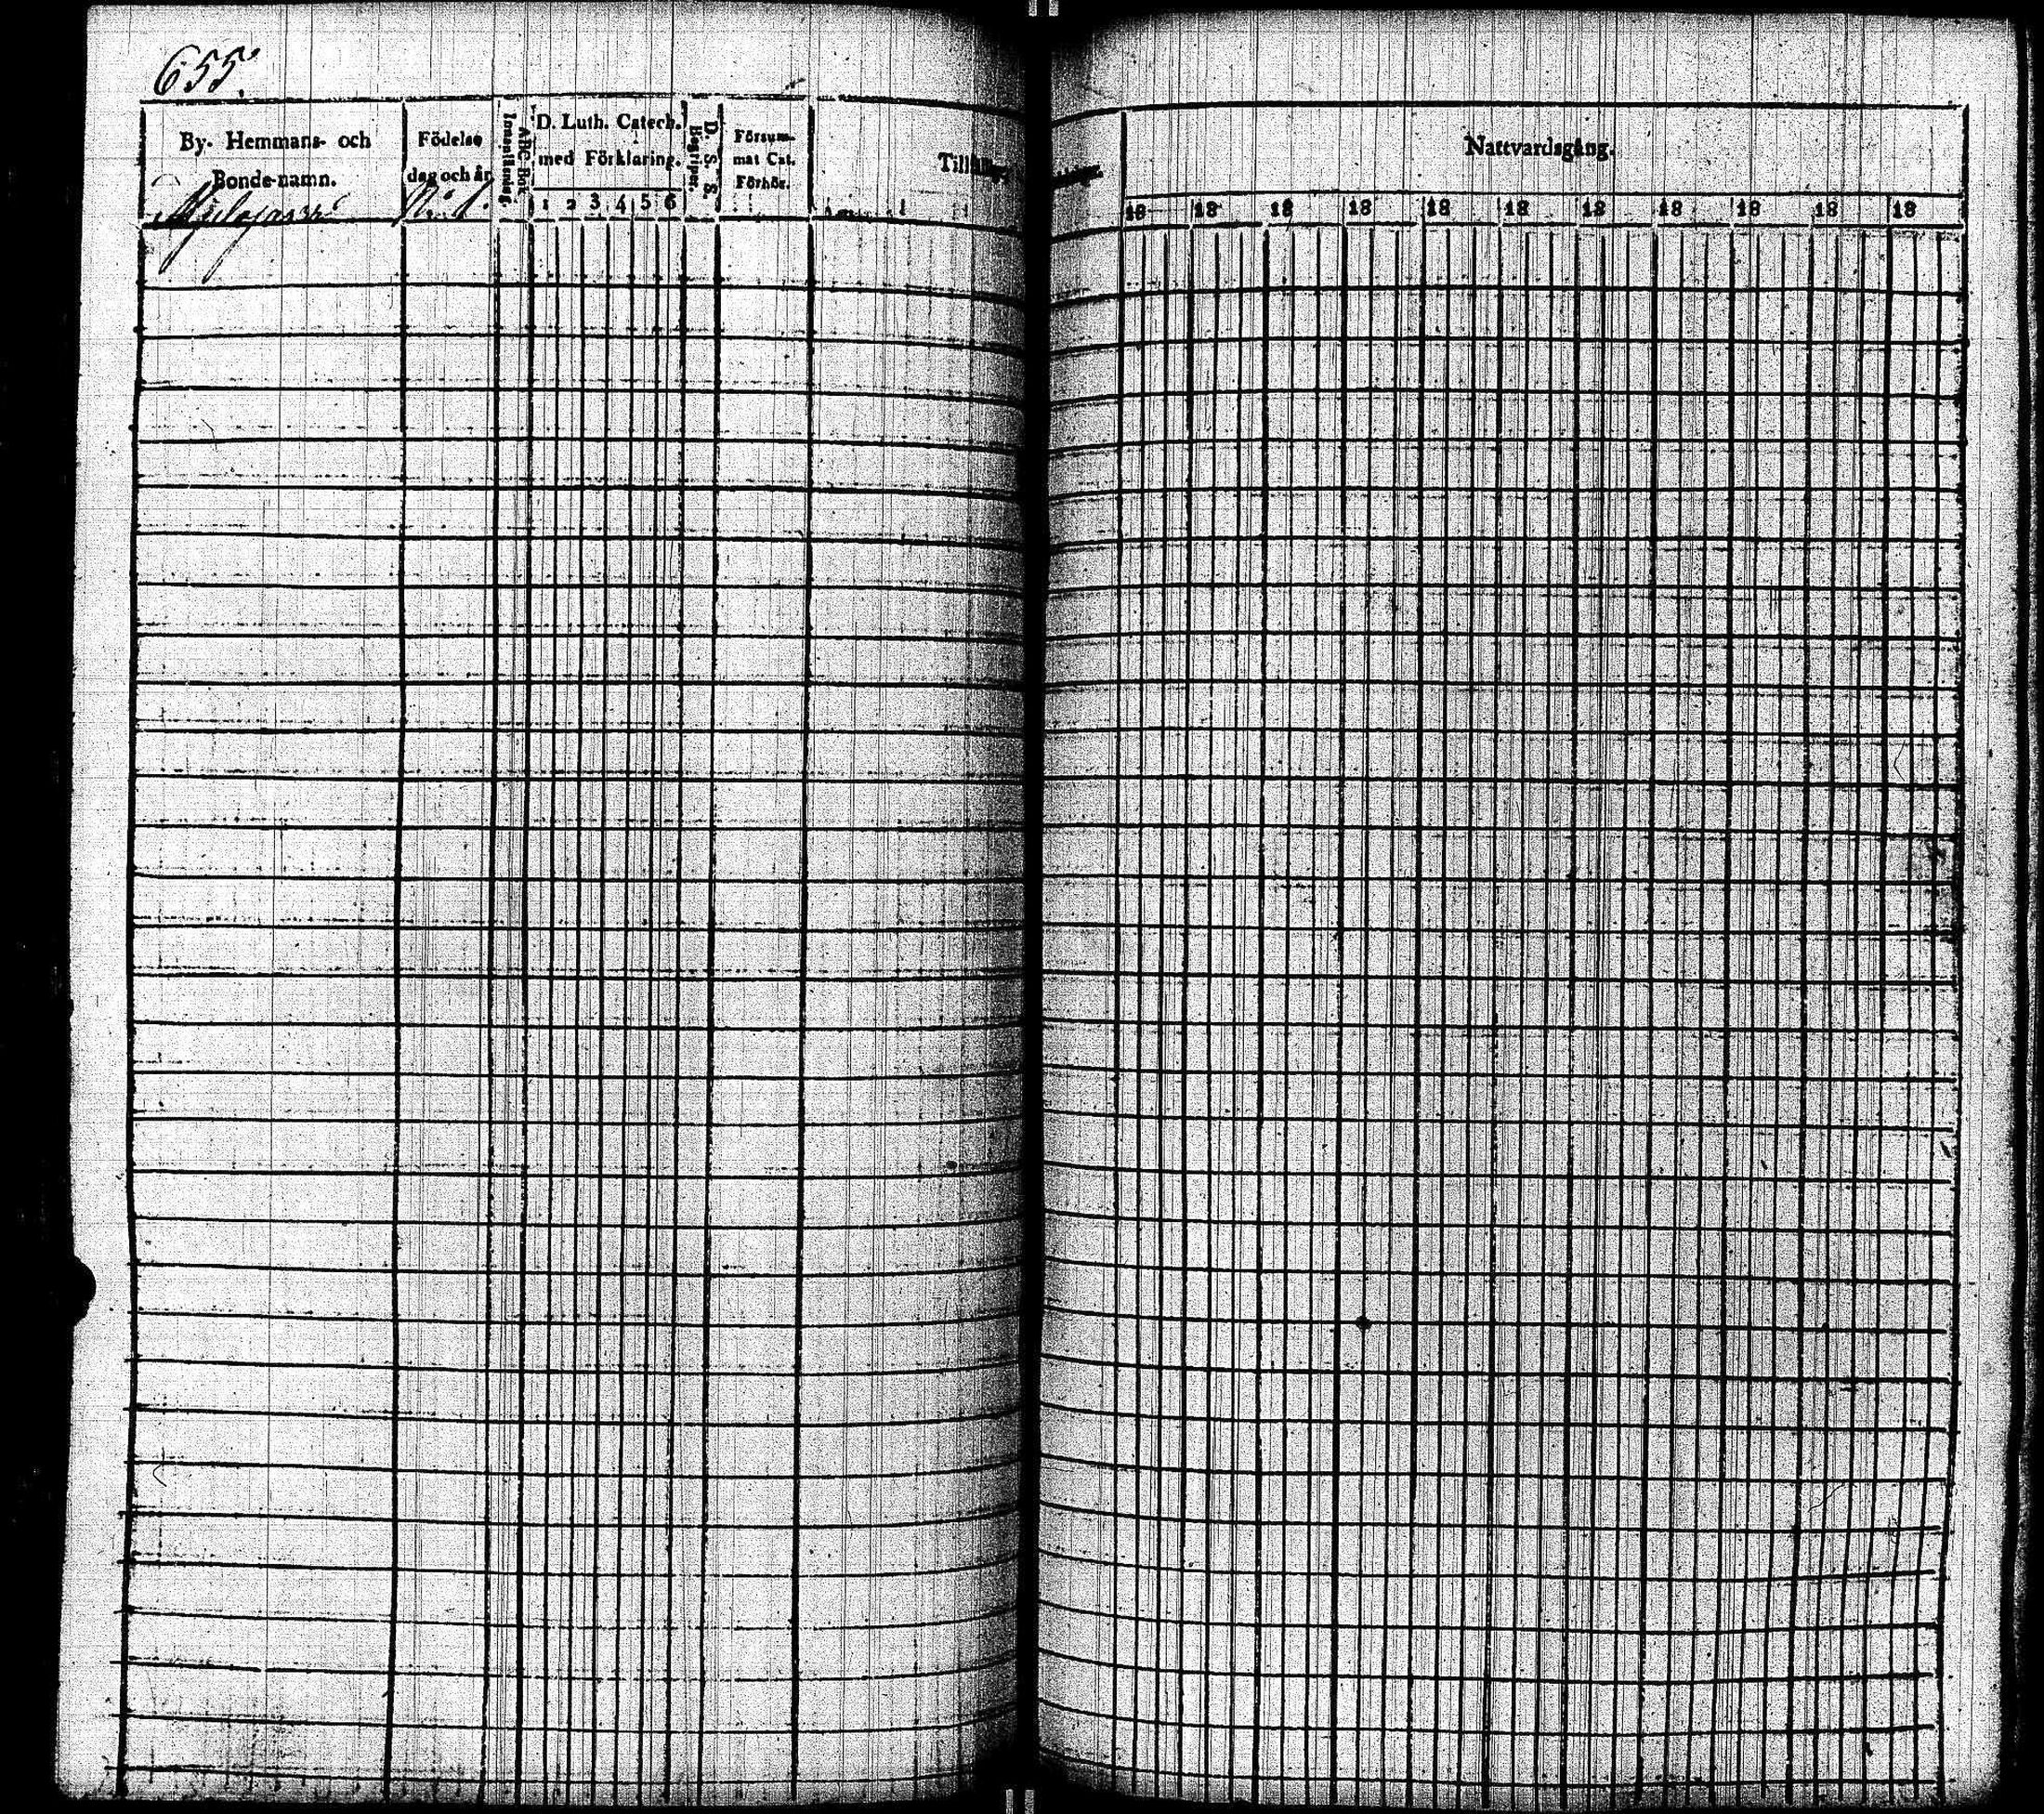 655.
By. Hemmans- och
Bonde-namn.
Födelse
dag och år.
No 1.
ABC-Bok
Innanläsning.
D. Luth. Catech.
med Förklaring.
1 2 3 4 5 6
D. S. S.
Begriper.
Försum-
mat Cat.
Förhör.
Nattvardsgång.
18 18 18 18 18 18 18 18 18 18 18